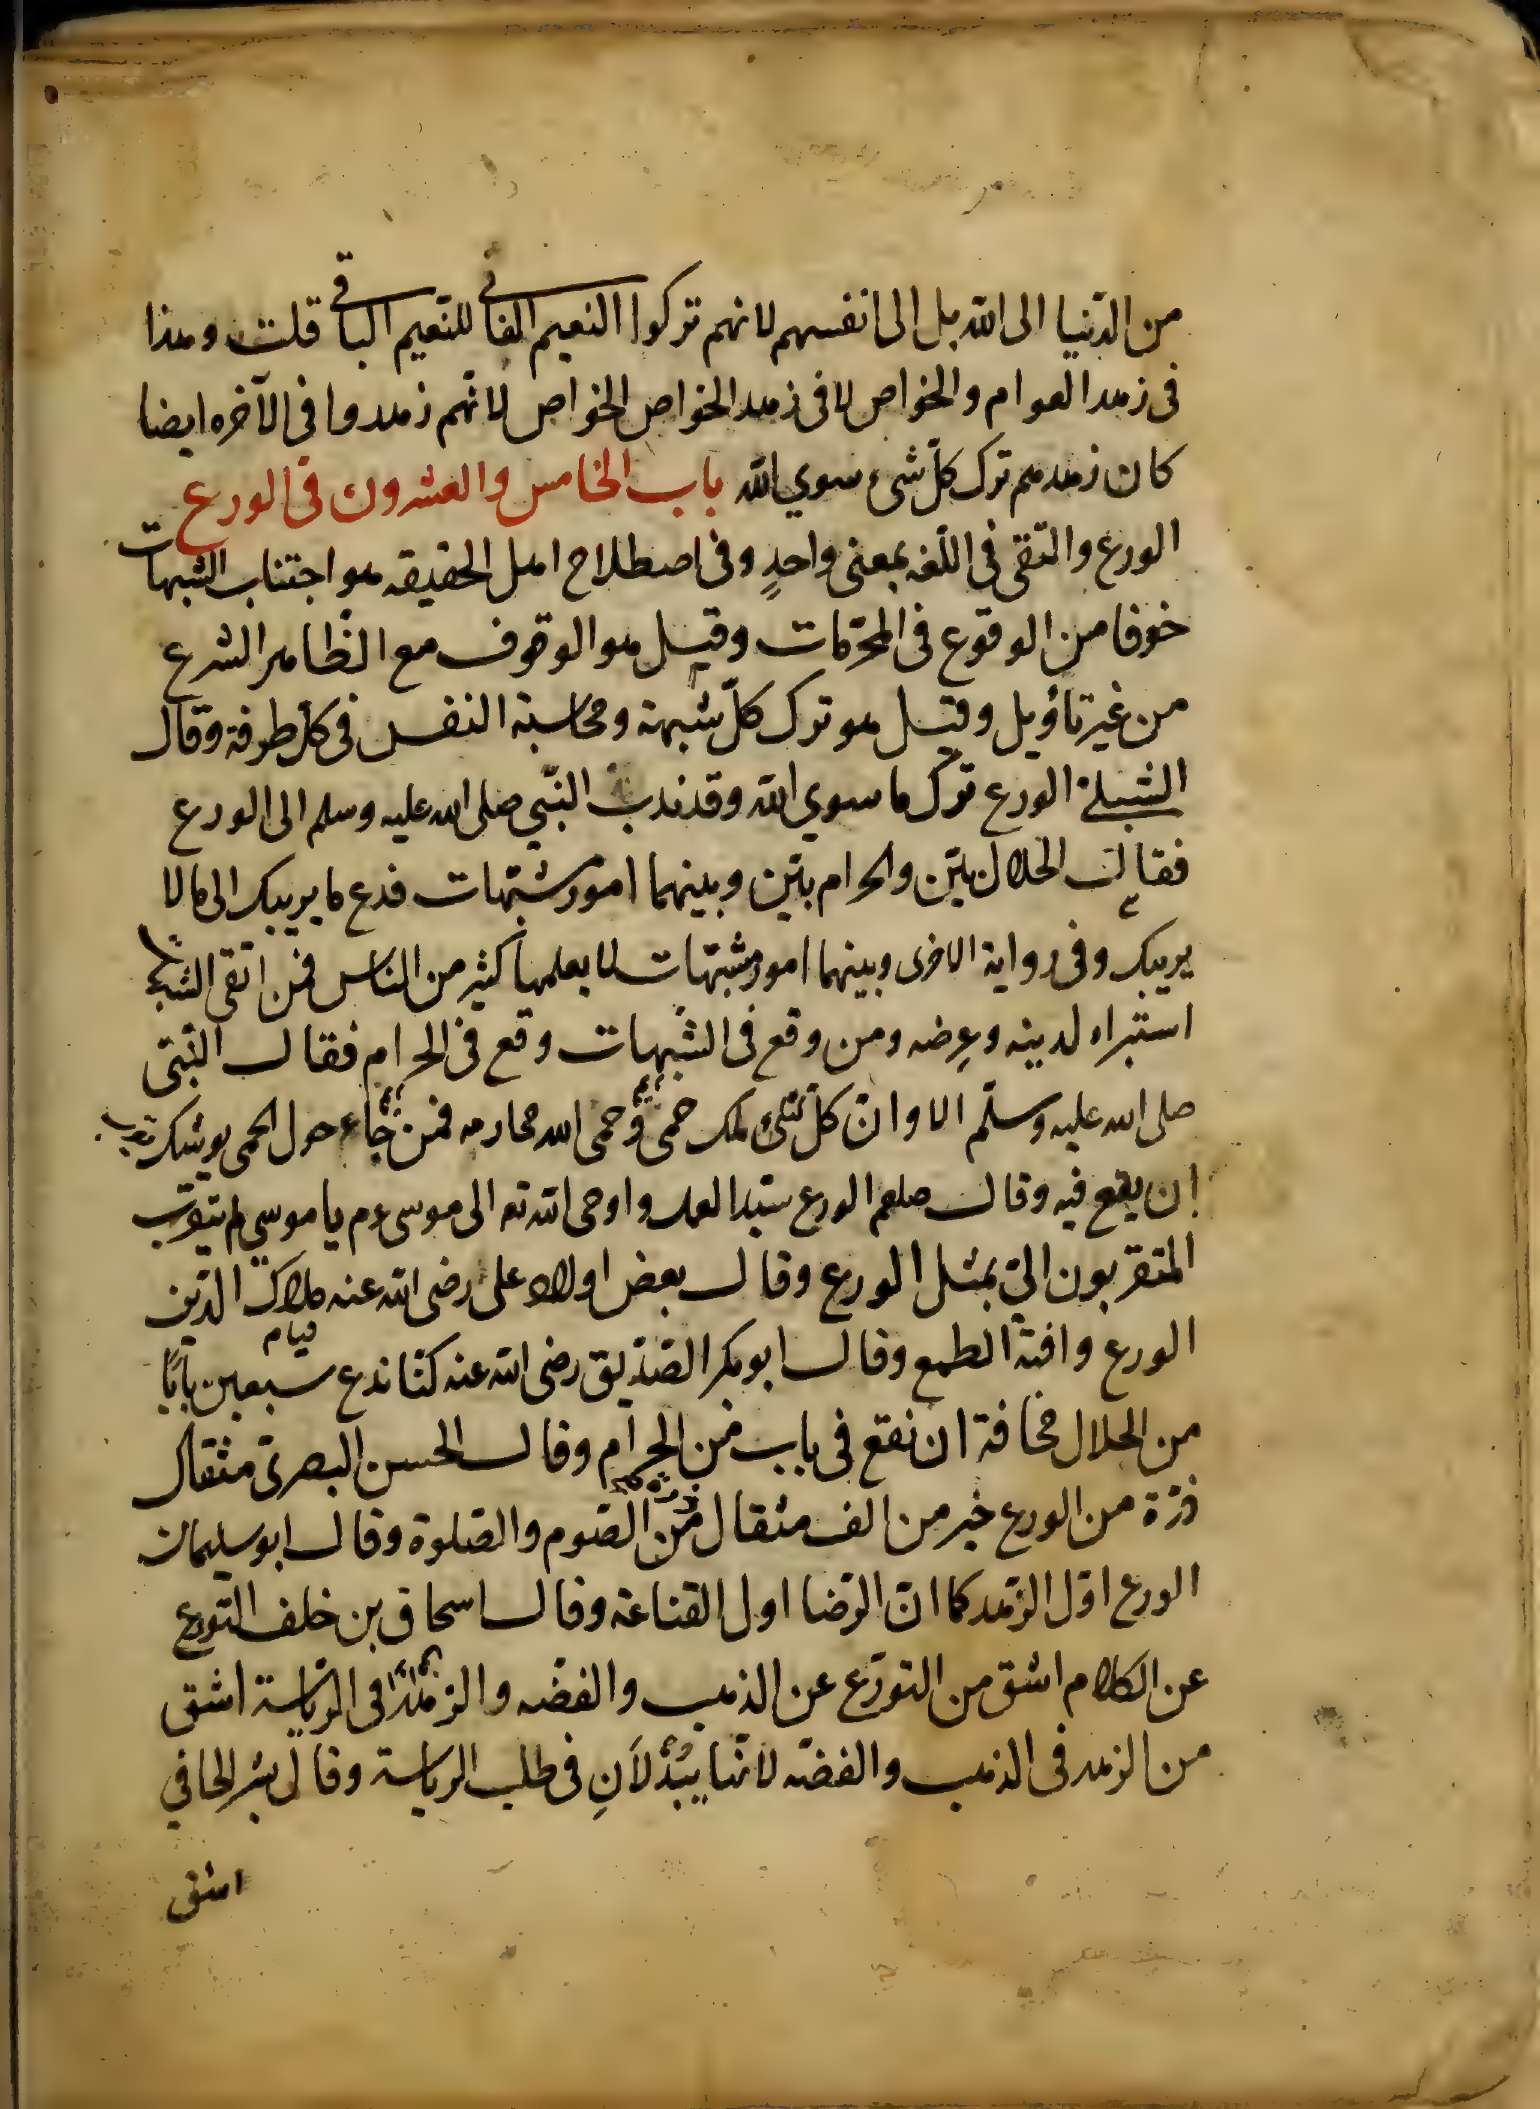 من الدّنيا الى اللّه بل الى انفسهم لانهم تركوا النعيم الفانى للنّعيم الباقى قلت وهذا
فى زهد العوام والخواص لا فى زهد الخواص الخواص لانّهم زهدوا فى الآخره ايضا
كان زهدهم ترك كلّ شئ سوي اللّه باب الخامس والعشرون فى الورع
الورع والتقى فى اللّغه بمعنى واحدٍ وفى اصطلاح اهل الحقيقه هو اجتناب الشبهات
خوفا من الوقوع فى المحرّمات وقيل هو الوقوف مع الظّاهر الشرع
من غير تأويل وقيل هو ترك كلّ شبهة ومحاسبة النفس فى كل طرفة وقال
الشبلى الورع ترك ما سوي اللّه وقد ندب النّبي صلى الله عليه وسلم الى الورع
فقال الحلال بيّن والحرام بيّن وبينهما امور مشتبهات فدع ما يريبك الى ما لا
يريبك وفى رواية الاخرى وبينهما امور مشتبهات لا يعلمها كثير من الناس فمن اتقى الشبهات
استبراء لدينه وعِرضه ومن وقع فى الشّبهات وقع فى الحرام فقال النّبى
صلى الله عليه وسلّم الا وانّ كلّ ملك حمىً وحمى الله محارمه فمن حول الحمى يوشك
ان يقع فيه وقال صلعم الورع سيّد العمل واوحى اللّه تع الى موسى عم يا موسي لم يتقرب
المتقربون الىّ بمثل الورع وقال بعض اولاد على رضى اللّه عنه ملاك الدّين
الورع وافتة الطمع وقال ابو بكر الصّدّيق رضى اللّه عنه كنّا ندع سبعين بابًا
من الحلال مخافة ان نقع فى باب من الحرام وقال الحسن البصرىّ مثقال
ذرّة من الورع خير من الف مثقال من الصّوم والصّلوة وقال ابو سليمان
الورع اوّل الزّهد كما انّ الرّضا اول القناعة وقال اسحاق بن خلف التورع
عن الكلام اشق من التورّع عن الذهب والفضّه والزهد فى الرّياسة اشق
من الزهد فى الذهب والفضّه لانّهما يُبْذَلانِ فى طلب الرياسة وقال بشر الحافي
اشق